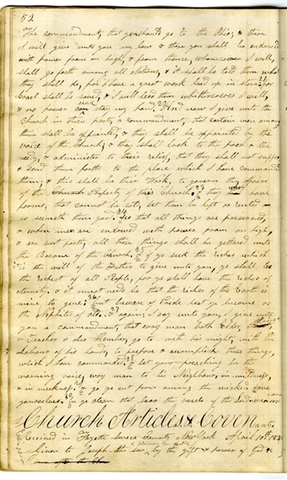 52
The commandment, that ye should go to the Ohio; & there
I will give unto you my law & there you shall be endowed
with power from on high, & from thence, whomsoever I will,
shall go forth among all nations, & it shall be told them what
they shall do, for I have a great work laid up in store for
Israel shall be saved, & I will lead them whithersoever I will,
& no power shall stay my hand. And now I give unto the
Church in these parts, a commandment, that certain men among
them shall be appointed, & they shall be appointed by the
voice of the Church; & they shall look to the poor & the
needy, & administer to their relief, that they shall not suffer
& send them forth to the place which I have commanded
them; & this shall be their work, to govern the affairs
of the Property of this Church; & they that have
farms, that cannot be sold, let them be left or rented
as seemeth them good. See that all things are preserved,
& when men are endowed with power from on high,
& are sent forth, all these things shall be gathered unto
the Bosom of the Church; & if ye seek the riches which
it is the will of the Father to give unto you, ye shall be
the richest of all People, for ye shall have the riches of
eternity; & it must needs be that the riches of the Earth is
mine to give: but beware of Pride lest ye become as
the Nephites of old. & again, I say unto you, I give unto
you a commandment, that evry man both Elder,
Teacher & also Member, go to with his might, with the
Labour of his hands, to prepare & accomplish these things,
which I have commanded; & let your preaching be the
warning voice, evry man to his Neighbour, in mildness,
& in meekness; & go ye out from among the wicked, save
yourselves, be ye clean that bear the vessels of the Lord amen
Church Articles & Covenants
Received in Fayette Seneca County New York April 10th 1830
Given to Joseph the seer by the gift & power of God &